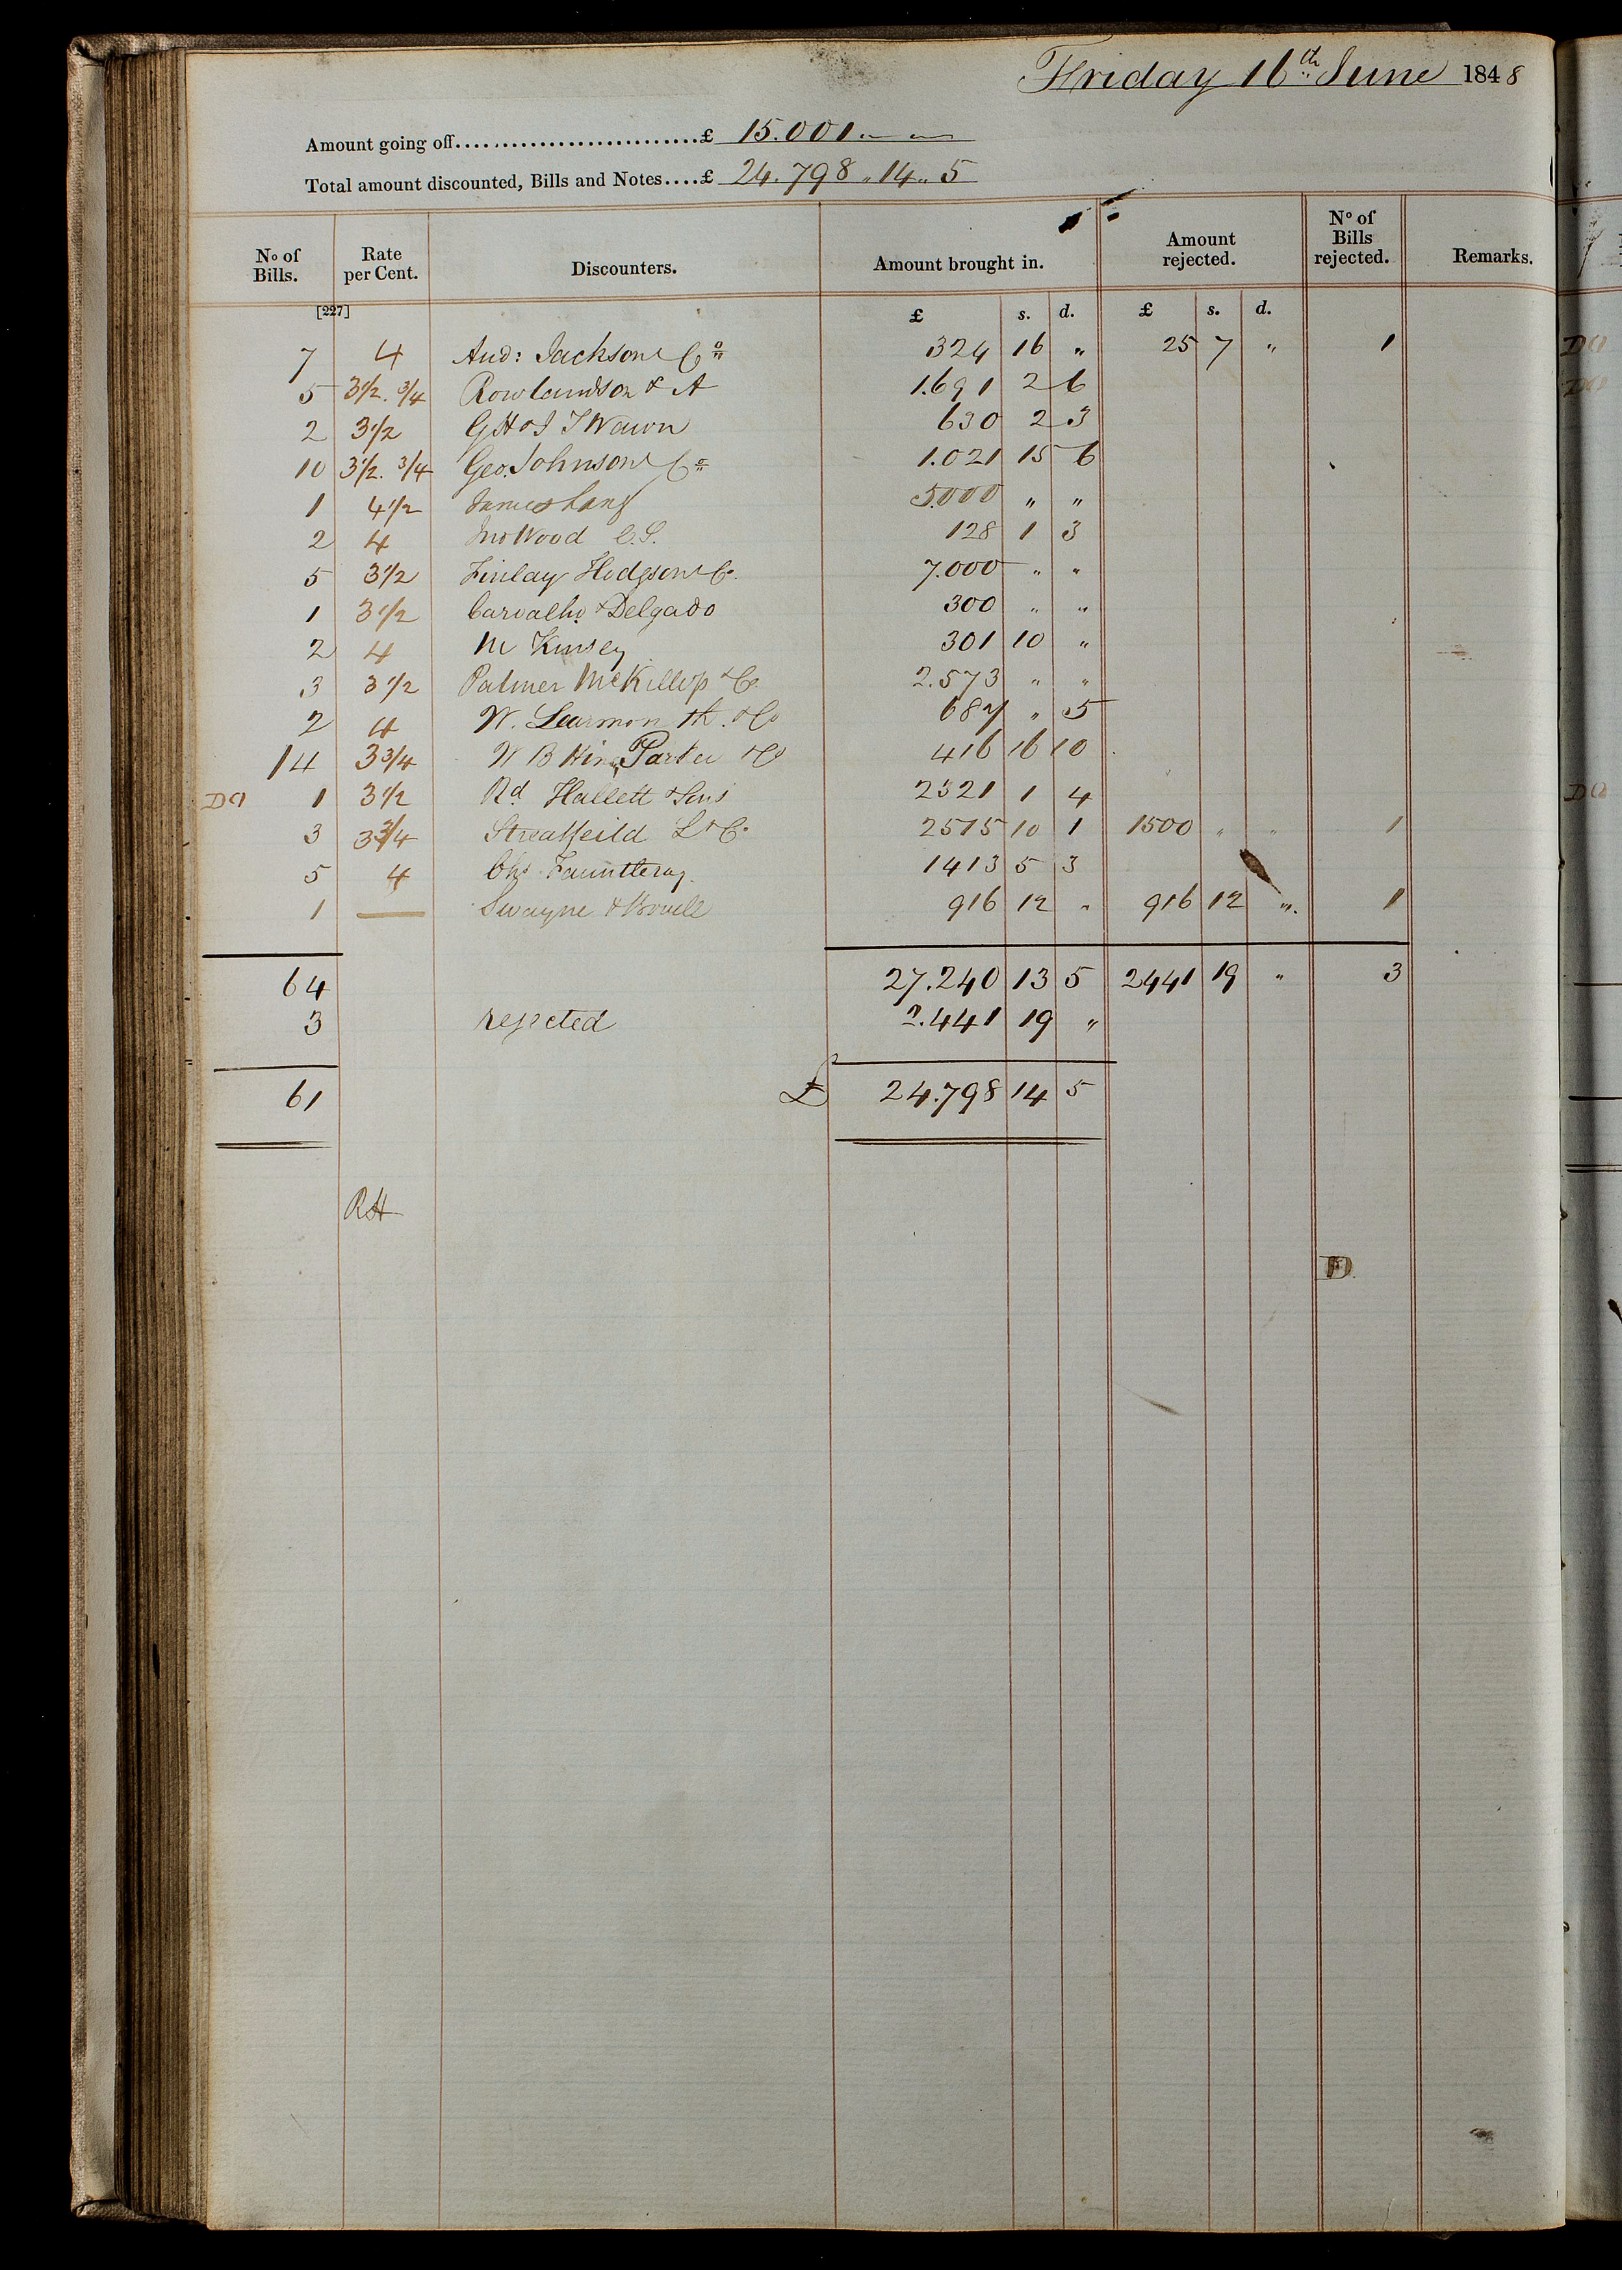 Friday 16th June 1848
Amount going off..........................£ 15.001 „ — —
Total amount discounted, Bills and Notes....£ 24.798 „ 14 „ 5
No of Bills. Rate per Cent. Discounters. Amount brought in. Amount rejected. No of Bills rejected. Remarks.
[227] £ s. d. £ s. d.
7 4 And: Jackson & Co 324 16 „ 25 7 „ 1
5 3 1/2. 3/4 Rowlandson & A 1.691 2 6
2 3 1/2 G H & J T Wawn 630 2 3
10 3 1/2. 3/4 Geo. Johnson & Co 1.021 15 6
1 4 1/2 James Lang 5000 „ „
2 4 Jno Wood C.S. 128 1 3
5 3 1/2 Finlay Hodgson & Co. 7.000 „ „
1 3 1/2 Carvalho & Delgado 300 „ „
2 4 M Kinsey 301 10 „
3 3 1/2 Palmer McKillop & Co. 2.573 „ „
2 4 W. Learmonth. & Co 687 „ 5
14 3 3/4 W B King Parker & Co 416 16 10
1 3 1/2 Rd Hallett & Sons 2321 1 4
3 3 3/4 Streatfeild L & Co 2515 10 1 1500 „ „ 1
5 4 Chs Fauntleroy. 1413 5 3
1 — Swayne & Bovill 916 12 „ 916 12 „. 1
64 27.240 13 5 2441 19 „ 3
3 rejected 2.441 19 „
61 £ 24.798 14 5
RH
D